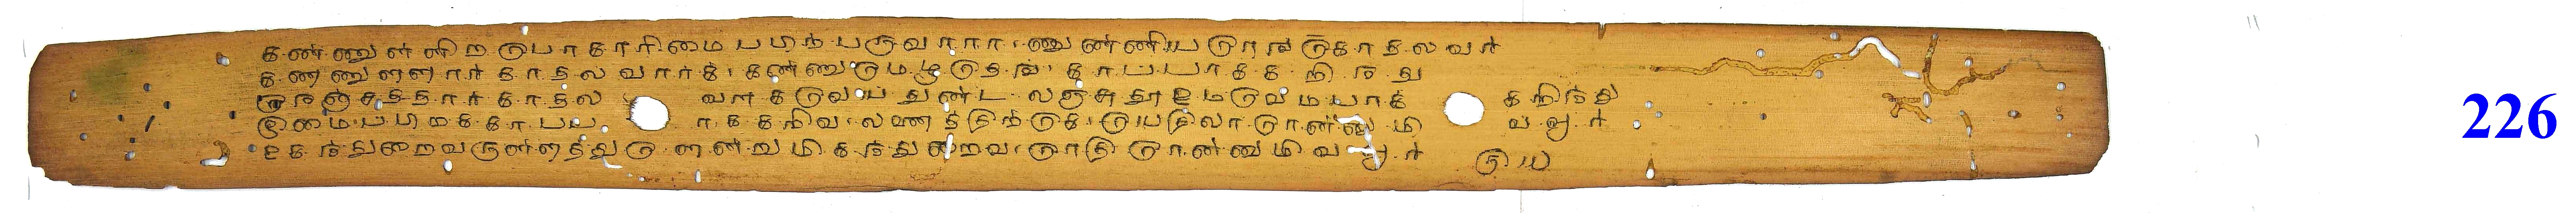 கண்ணுள்ளிறபொகாரிமைபபிந்பருவராரா நுண்ணியரெஙகாதலவர்
கணணுளளார்காதலவார்க் கண்ணுமெழுதெங் காப்பாககறிந்து
நெஞ்சததார்காதல வாகவெய்துண்டலஞசுதுமவெமபாக் கறிந்து
இமைப்பிமககாபபா ாககறிவலணைத்திற்கெ யெதிலாரென்னுமி வ்வூர்
உகந்துறைவருள்ளத்துளென்றுமிகந்துறைவரெதிரென்னுமிவவூர் ரு ய
226